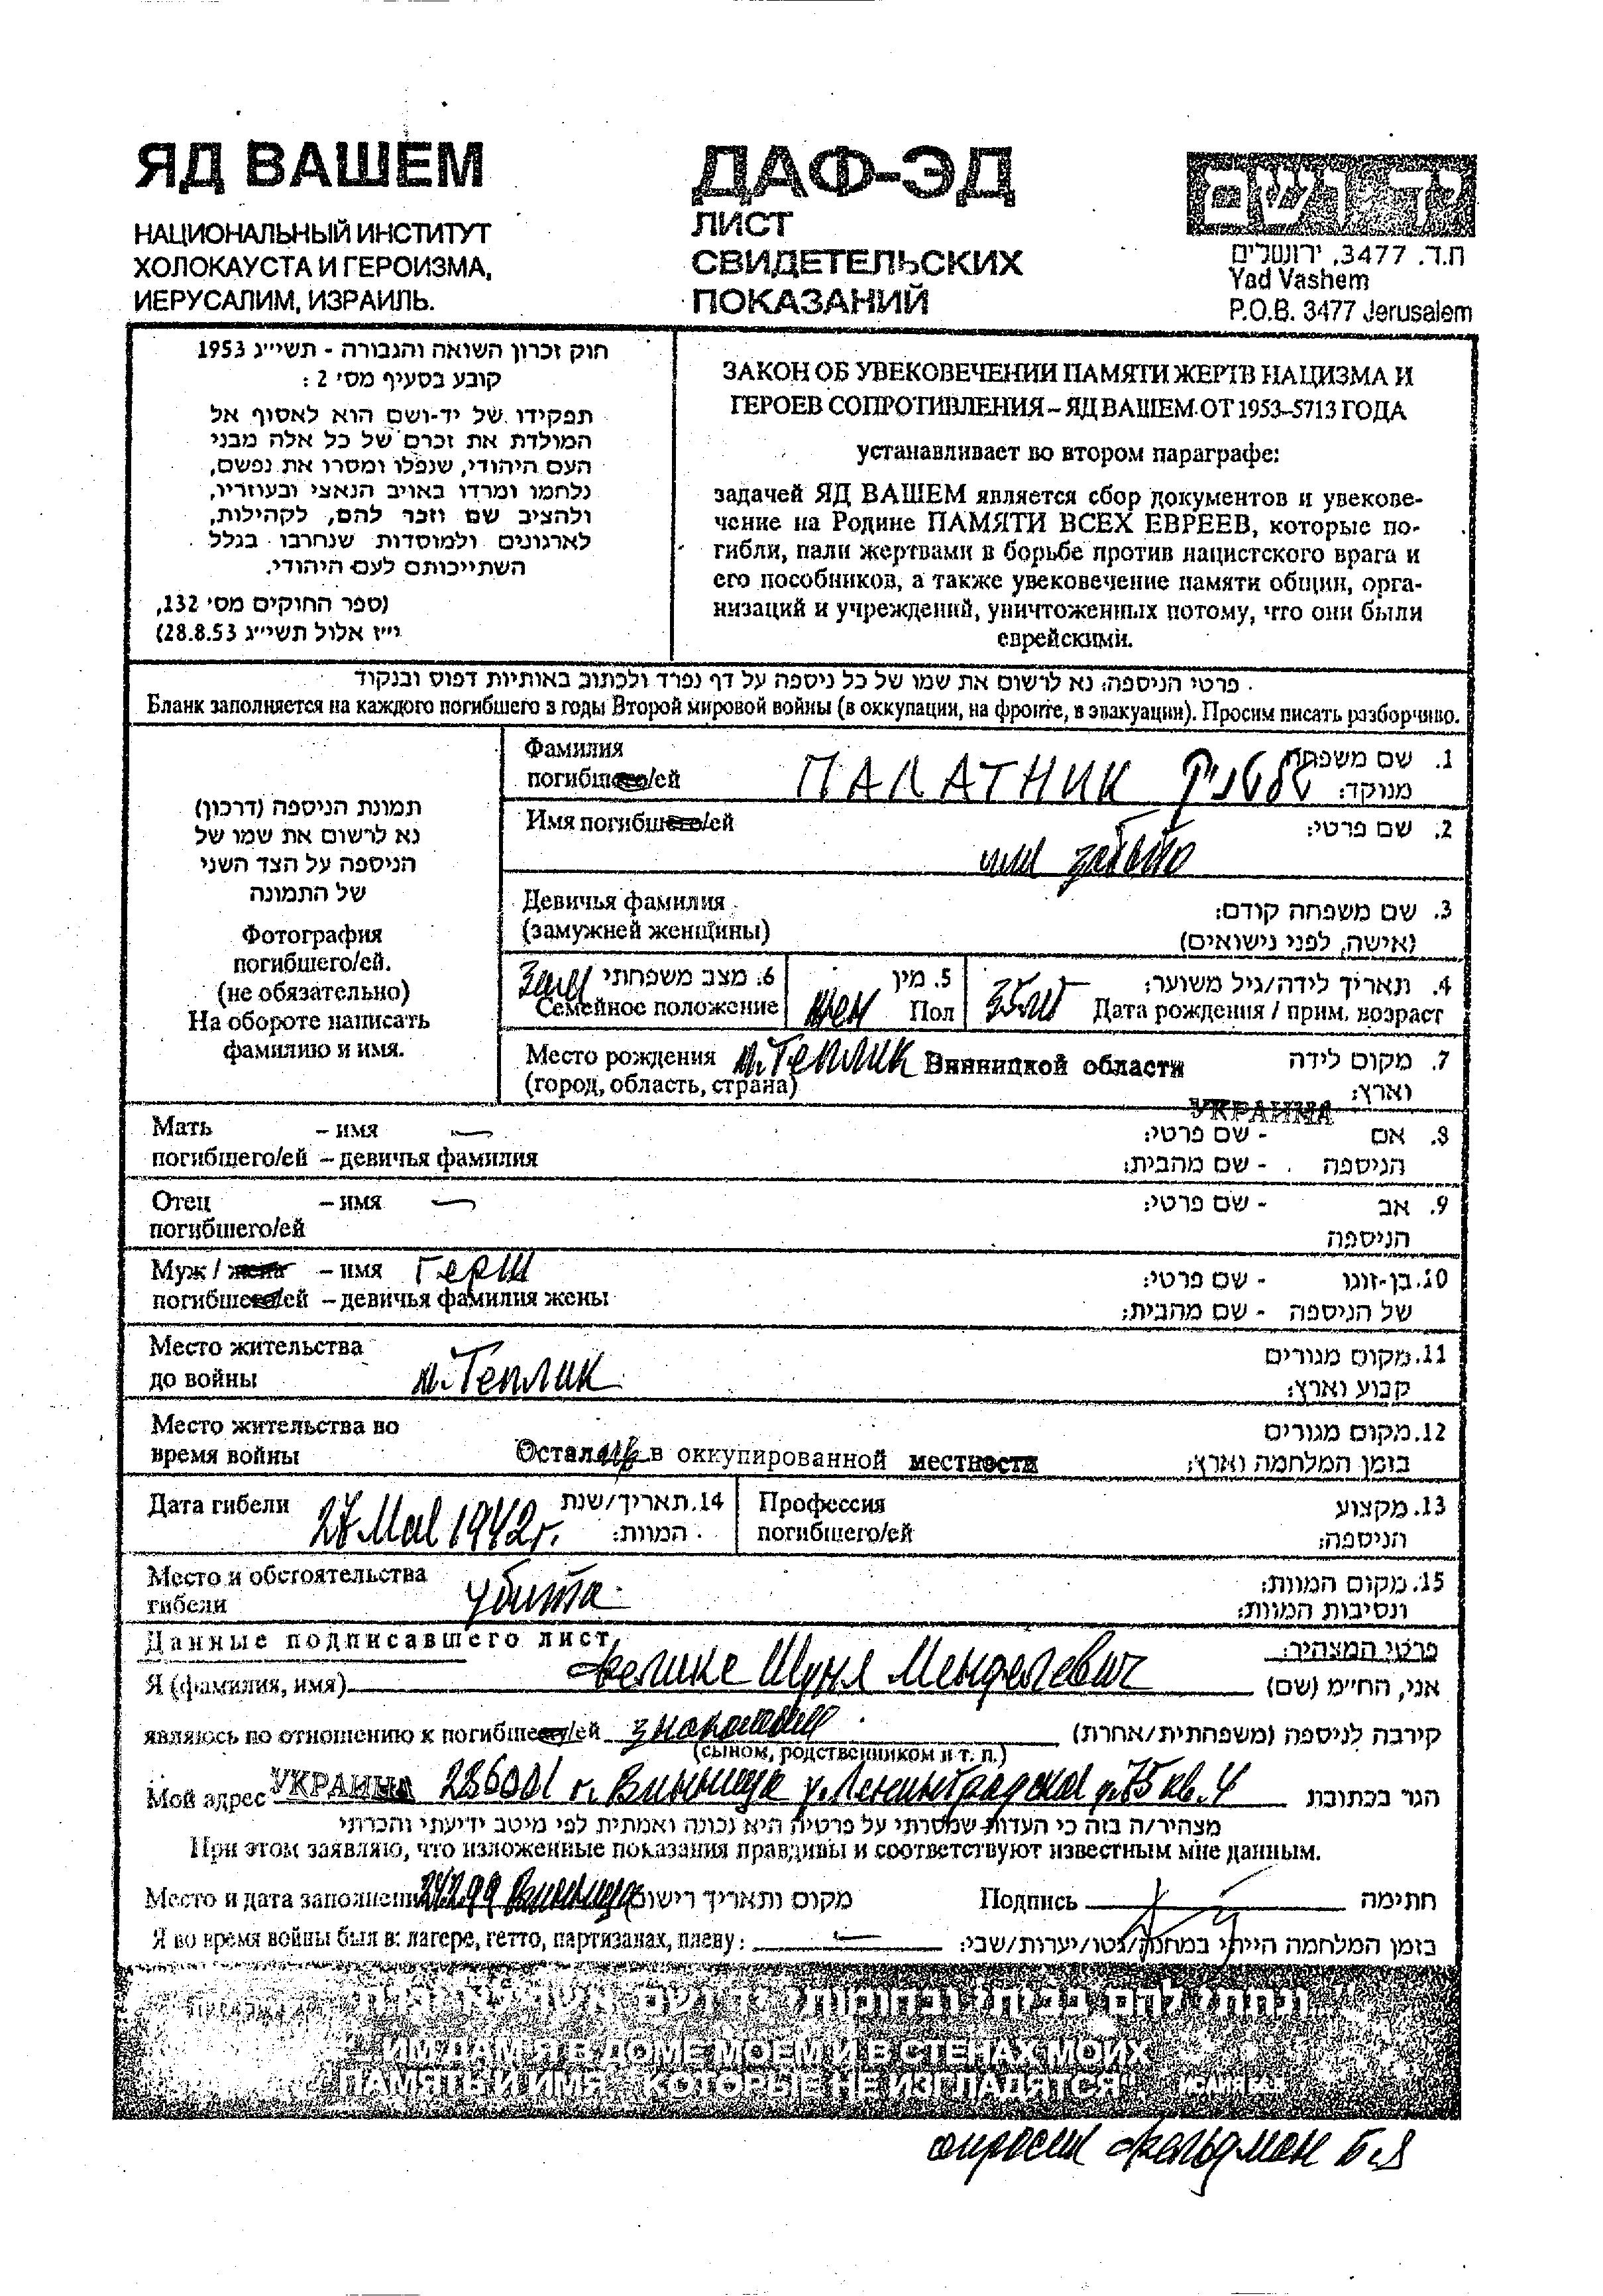 ЯД ВАШЕМ
НАЦИОНАЛЬНЫЙ ИНСТИТУТ
ХОЛОКАУСТА И ГЕРОИЗМА,
ИЕРУСАЛИМ, ИЗРАИЛЬ.
ДАФ-ЭД
ЛИСТ
СВИДЕТЕЛЬСКИХ
ПОКАЗАНИЙ
יד ושם
ת.ד. 3477, ירושלים
Yad Vashem
P.O.B. 3477 Jerusalem
חוק זכרון השואה והגבורה - תשי״ג 1953
קובע בסעיף מס׳ 2 :
תפקידו של יד-ושם הוא לאסוף אל
המולדת את זכרם של כל אלה מבני
העם היהודי, שנפלו ומסרו את נפשם,
נלחמו ומרדו באויב הנאצי ובעוזריו,
ולהציב שם וזכר להם, לקהילות,
לארגונים ולמוסדות שנחרבו בגלל
השתייכותם לעם היהודי.
(ספר החוקים מס׳ 132,
י״ז אלול תשי״ג 28.8.53)
ЗАКОН ОБ УВЕКОВЕЧЕНИИ ПАМЯТИ ЖЕРТВ НАЦИЗМА И
ГЕРОЕВ СОПРОТИВЛЕНИЯ – ЯД ВАШЕМ ОТ 1953–5713 ГОДА
устанавливает во втором параграфе:
задачей ЯД ВАШЕМ является сбор документов и увекове-
чение на Родине ПАМЯТИ ВСЕХ ЕВРЕЕВ, которые по-
гибли, пали жертвами в борьбе против нацистского врага и
его пособников, а также увековечение памяти общин, орга-
низаций и учреждений, уничтоженных потому, что они были
еврейскими.
פרטי הניספה: נא לרשום את שמו של כל ניספה על דף נפרד ולכתוב באותיות דפוס ובנקוד
Бланк заполняется на каждого погибшего в годы Второй мировой войны (в оккупации, на фронте, в эвакуации). Просим писать разборчиво.
תמונת הניספה (דרכון)
נא לרשום את שמו של
הניספה על הצד השני
של התמונה
Фотография
погибшего/ей.
(не обязательно)
На обороте написать
фамилию и имя.
Фамилия 1. שם משפחה
погибшего/ей ПАЛАТНИК פלטניק מנוקד:
Имя погибшего/ей 2. שם פרטי:
имя забыто
Девичья фамилия 3. שם משפחה קודם:
(замужней женщины) (אישה, לפני נישואים)
Зам 6. מצב משפחתי 5. מין 4. תאריך לידה/גיל משוער:
Семейное положение жен Пол 35 лет Дата рождения / прим. возраст
Место рождения м. Теплик Винницкой области 7. מקום לידה
(город, область, страна) וארץ:
УКРАИНА
Мать – имя — 8. אם - שם פרטי:
погибшего/ей – девичья фамилия הניספה - שם מהבית:
Отец – имя — 9. אב - שם פרטי:
погибшего/ей הניספה
Муж / жена – имя Герш 10. בן-זוגו - שם פרטי:
погибшего/ей – девичья фамилия жены של הניספה - שם מהבית:
Место жительства 11. מקום מגורים
до войны м. Теплик קבוע וארץ:
Место жительства во 12. מקום מגורים
время войны Осталась в оккупированной местности בזמן המלחמה וארץ:
Дата гибели 27 Мая 1942 г. 14. תאריך/שנת המוות: Профессия 13. מקצוע
погибшего/ей הניספה:
Место и обстоятельства 15. מקום המוות:
гибели убита ונסיבות המוות:
Данные подписавшего лист פרטי המצהיר:
Я (фамилия, имя) Шуня Менделевич אני, החי״מ (שם)
являюсь по отношению к погибшего/ей знакомый קירבה לניספה (משפחתית/אחרת)
(сыном, родственником и т. п.)
Мой адрес УКРАИНА 286001 г. Винница у. Ленинградская д. 75 кв. 4 הגר בכתובת
מצהיר/ה בזה כי העדות שמסרתי על פרטיה היא נכונה ואמתית לפי מיטב ידיעתי והכרתי
При этом заявляю, что изложенные показания правдивы и соответствуют известным мне данным.
Место и дата заполнения Винница מקום ותאריך רישום Подпись חתימה
Я во время войны был в: лагере, гетто, партизанах, плену: — בזמן המלחמה הייתי במחנה/גטו/יערות/שבי:
"ונתתי להם בביתי ובחומותי יד ושם... אשר לא יכרת"
"ИМ ДАМ Я В ДОМЕ МОЕМ И В СТЕНАХ МОИХ
ПАМЯТЬ И ИМЯ... КОТОРЫЕ НЕ ИЗГЛАДЯТСЯ".
опросил Фельдман Б.А